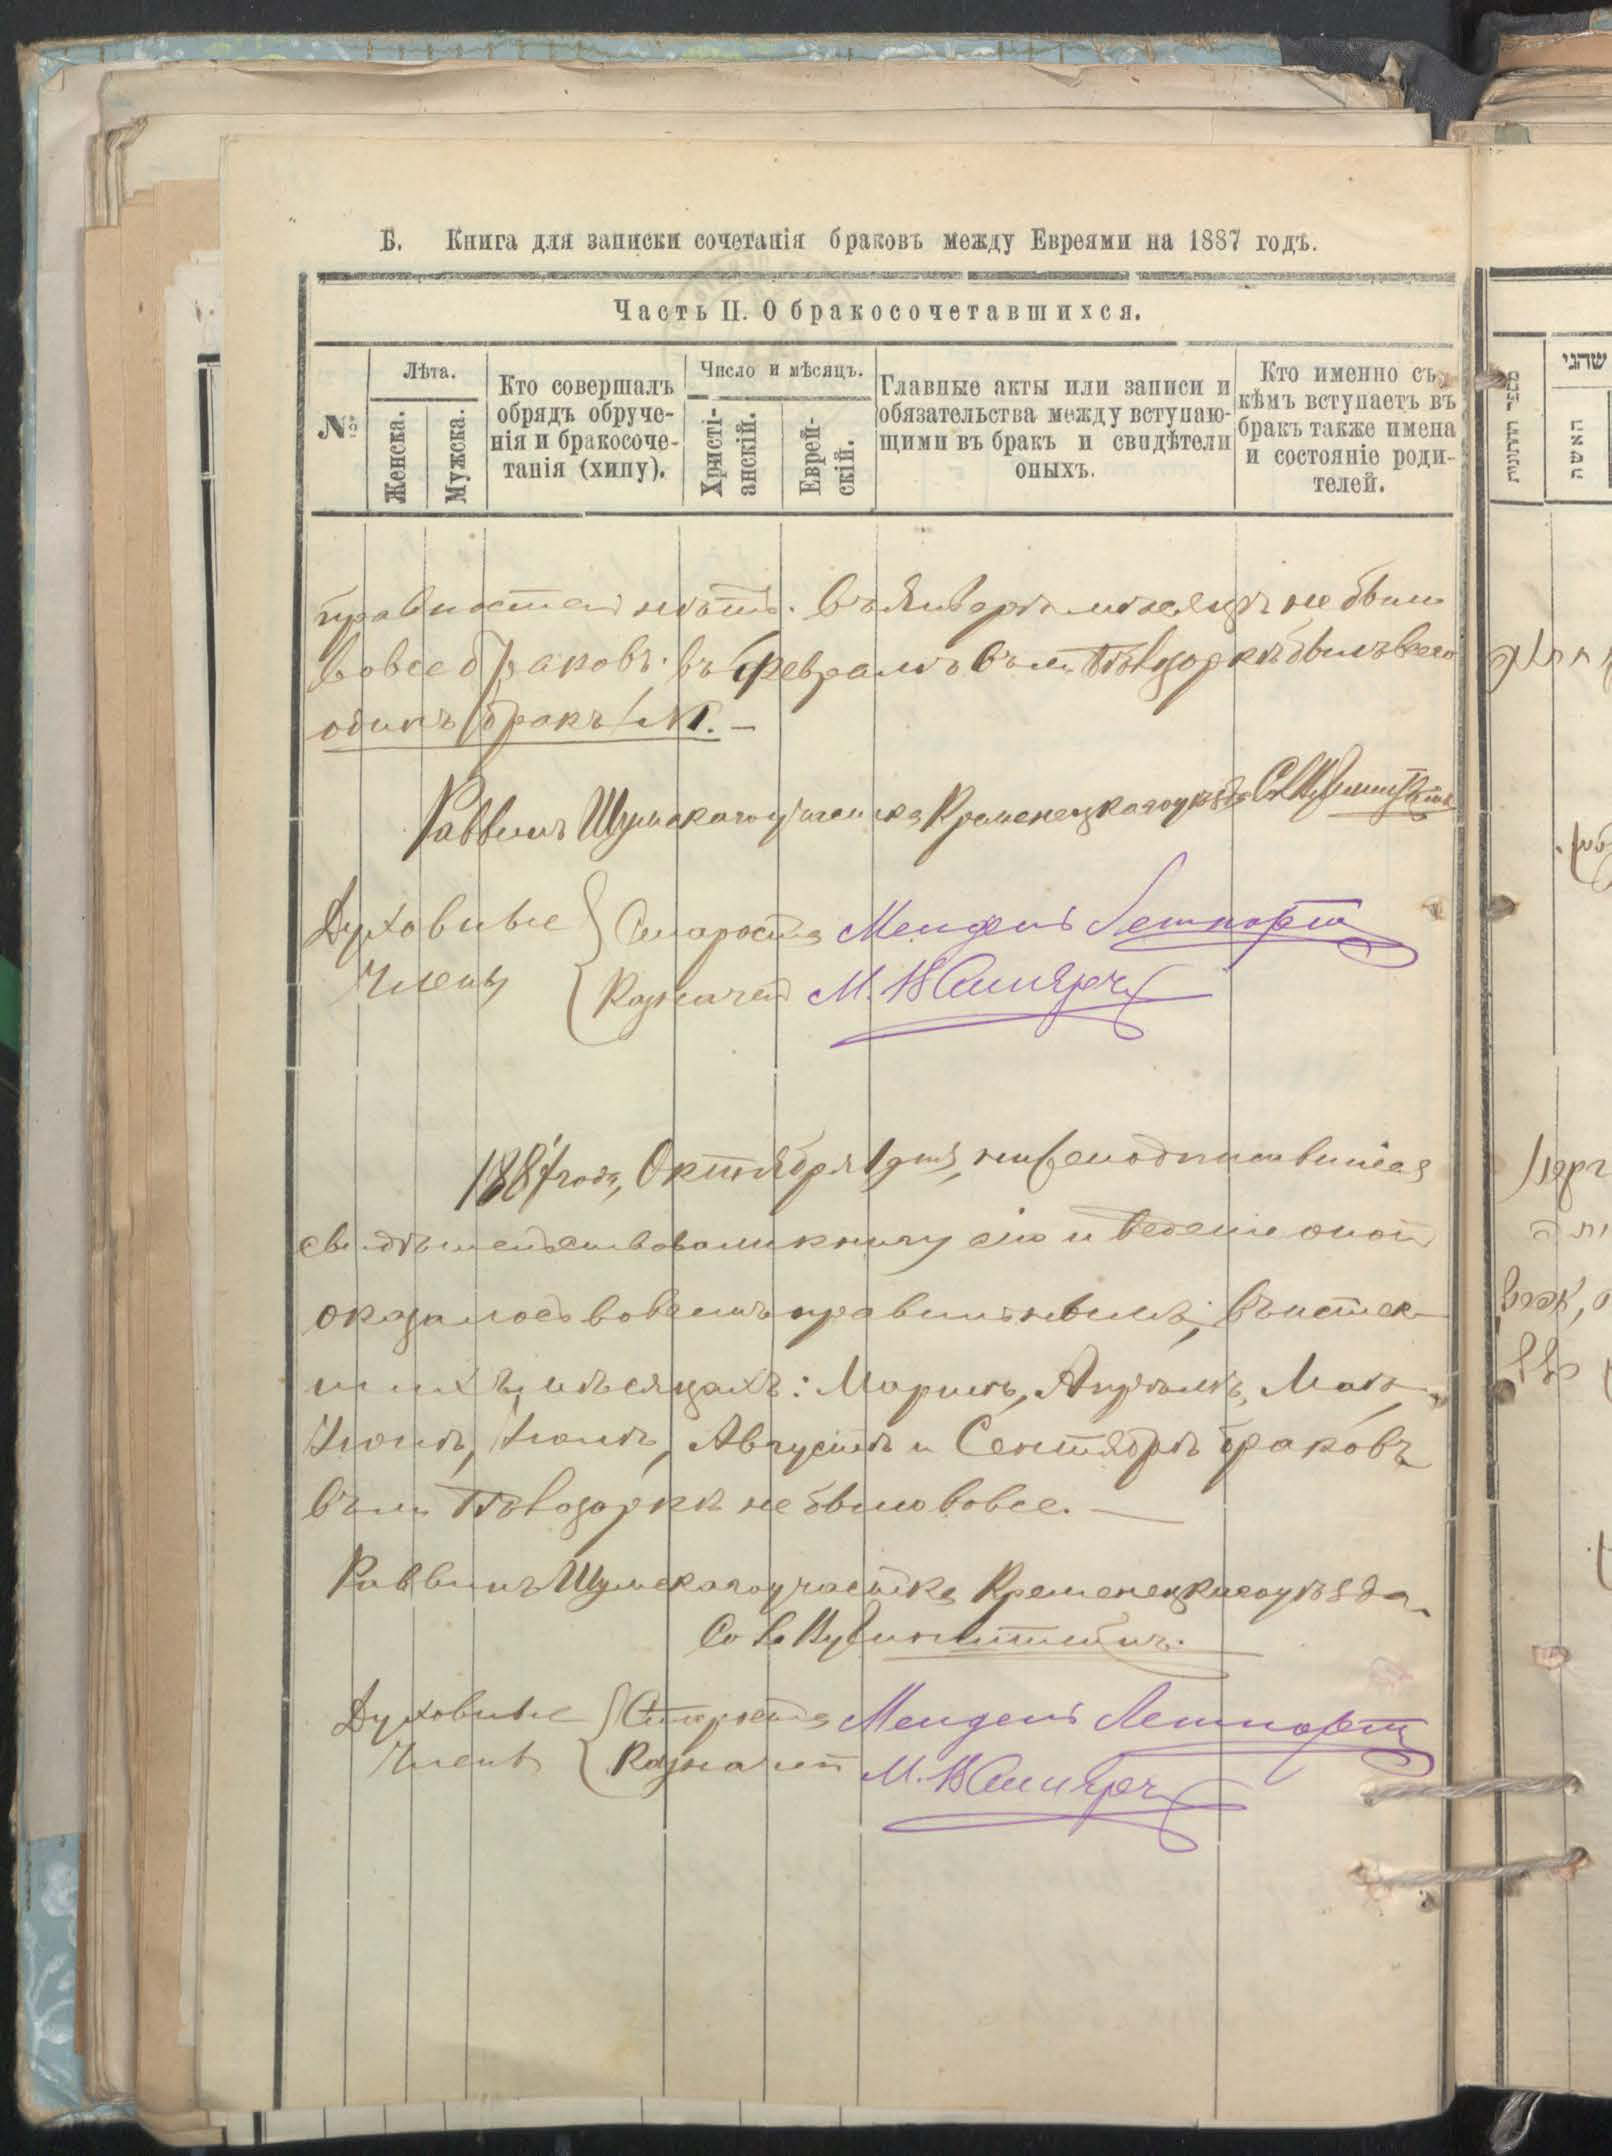 Б. Книга для записки сочетанія браковъ между Евреями на 1887 годъ.
Часть II. О бракосочетавшихся.
№
Лѣта.
Женска.
Мужска.
Кто совершалъ
обрядъ обруче-
нія и бракосоче-
танія (хипу).
Число и мѣсяцъ.
Христі-
анскій.
Еврей-
скій.
Главные акты или записи и
обязательства между вступаю-
щими въ бракъ и свидѣтели
оныхъ.
Кто именно съ
кѣмъ вступаетъ въ
бракъ также имена
и состояніе роди-
телей.
правностей нѣтъ. Въ Январѣ мѣсяцѣ не было
вовсе браковъ; въ Февралѣ въ м. было всего
одинъ бракъ №1. —
Раввинъ Шумскаго участка Кременецкаго уѣзда
Духовные Староста Мендель
Члены Казначей М.
1887 года, Октября 1 дня, нижеподписавшіеся
свидѣтельствовали книгу сію и веденіе оной
оказалось вовсемъ правильнымъ; въ истек-
шихъ мѣсяцахъ: Мартѣ, Апрѣлѣ, Маѣ,
Іюнѣ, Іюлѣ, Августѣ и Сентябрѣ браковъ
въ м. не было вовсе. —
Раввинъ Шумскаго участка Кременецкаго уѣзда
Духовные Староста Мендель
Члены Казначей М.
מספר החתונות
האשה